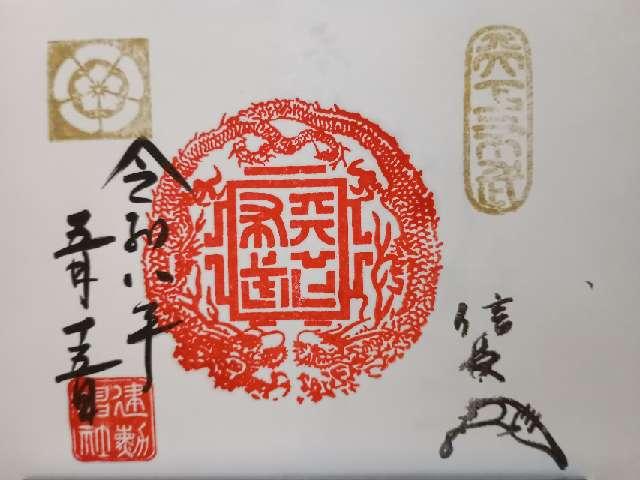 天下布武
信長
天下布武
令和八年
五月十五日
建勲神社